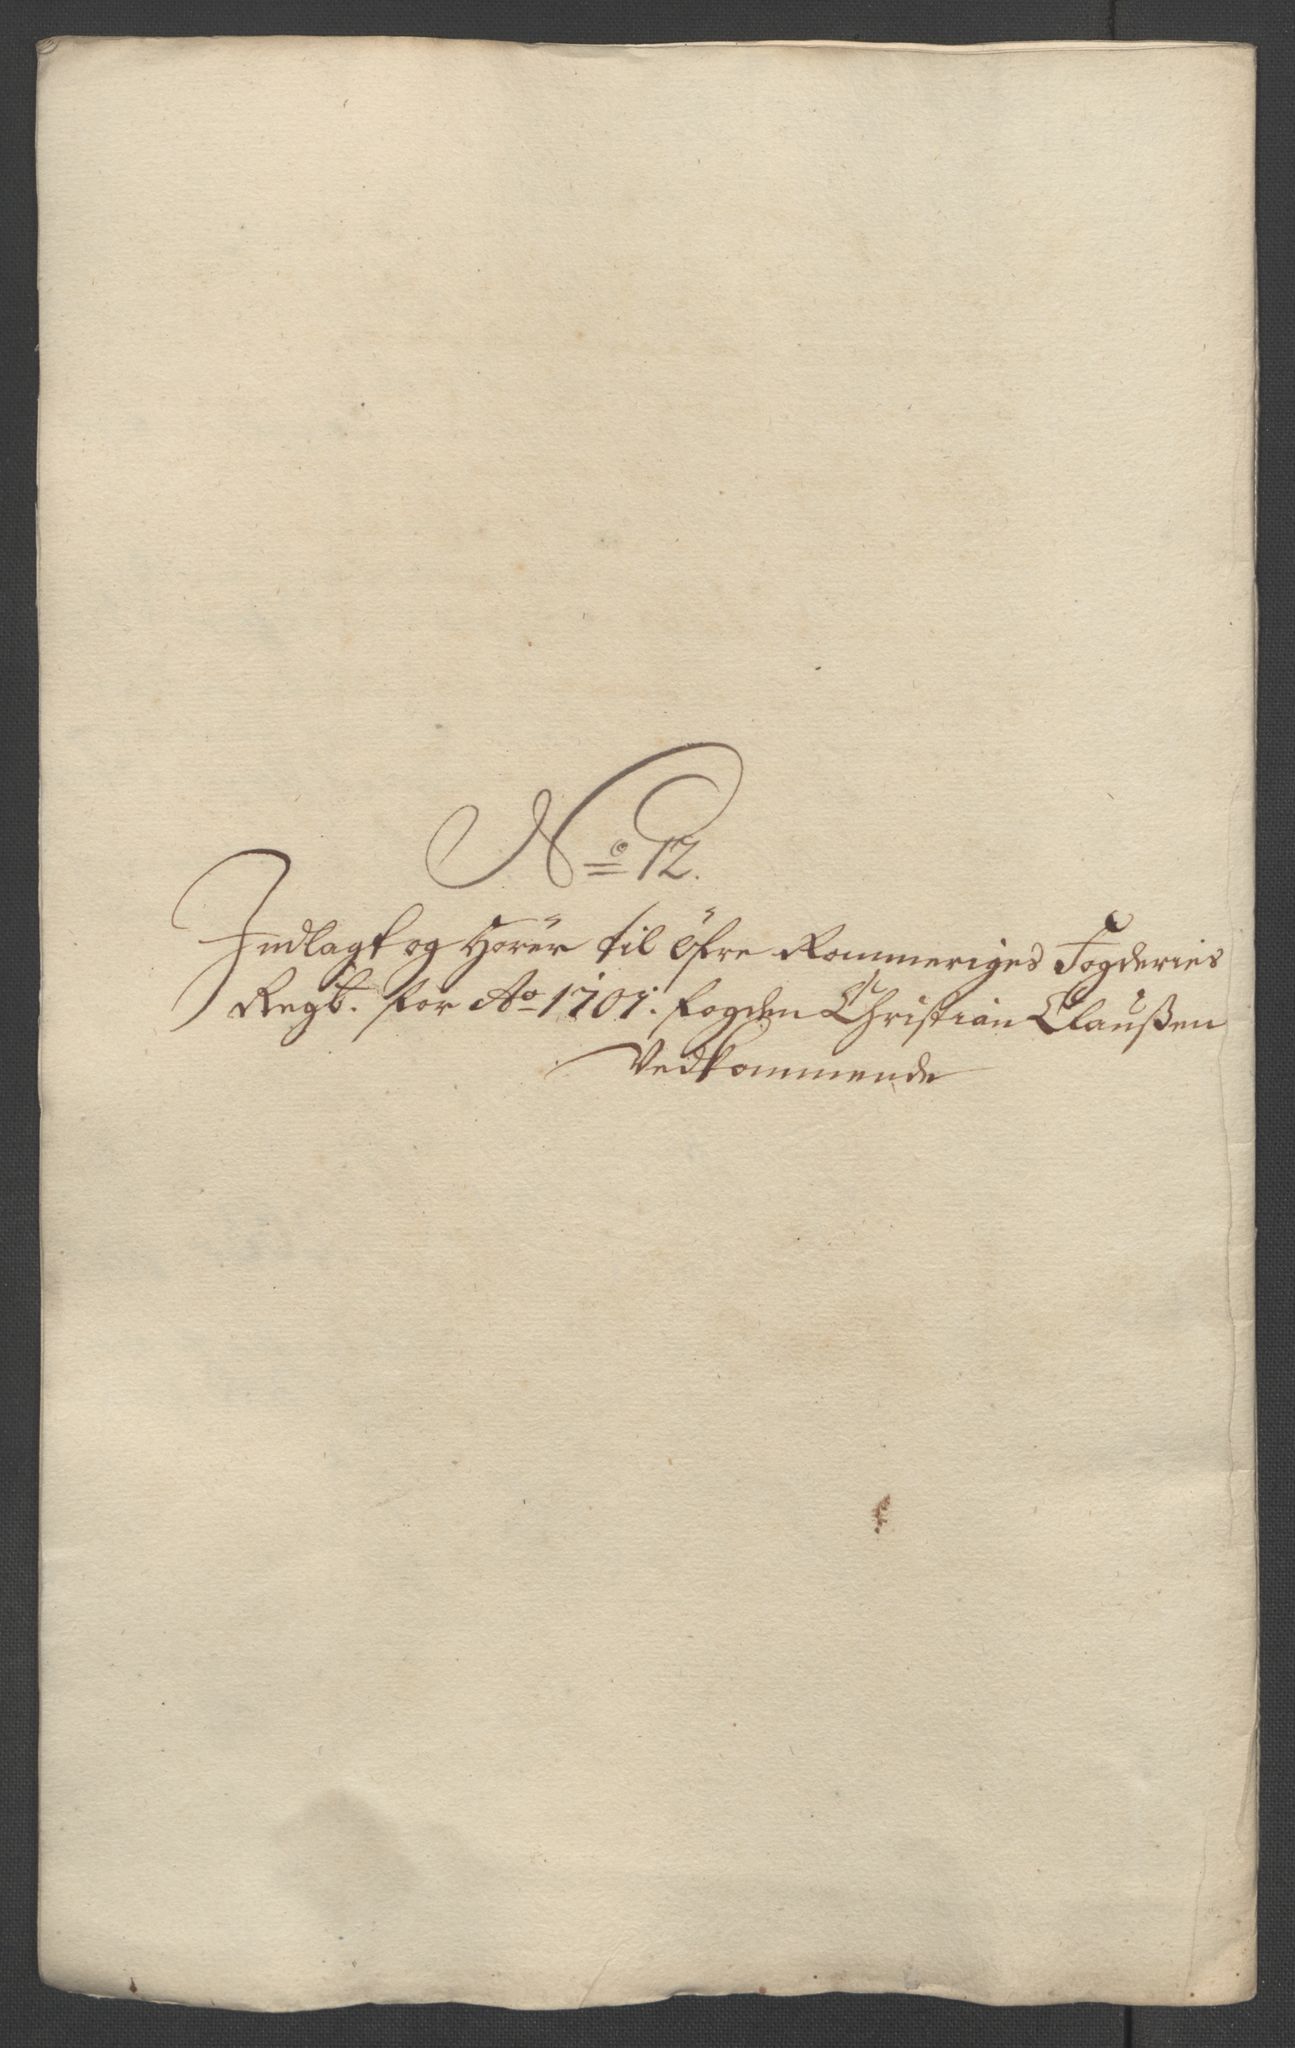 No 12.
Indlagt og Hörer til Öfre Rommeriges Fogderies
Regb. for Ao 1707. fogden Christian Claußen
Vedkommende